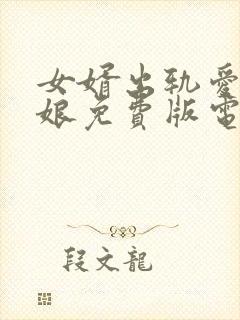 女婿出轨爱
娘免費版電
段文龍